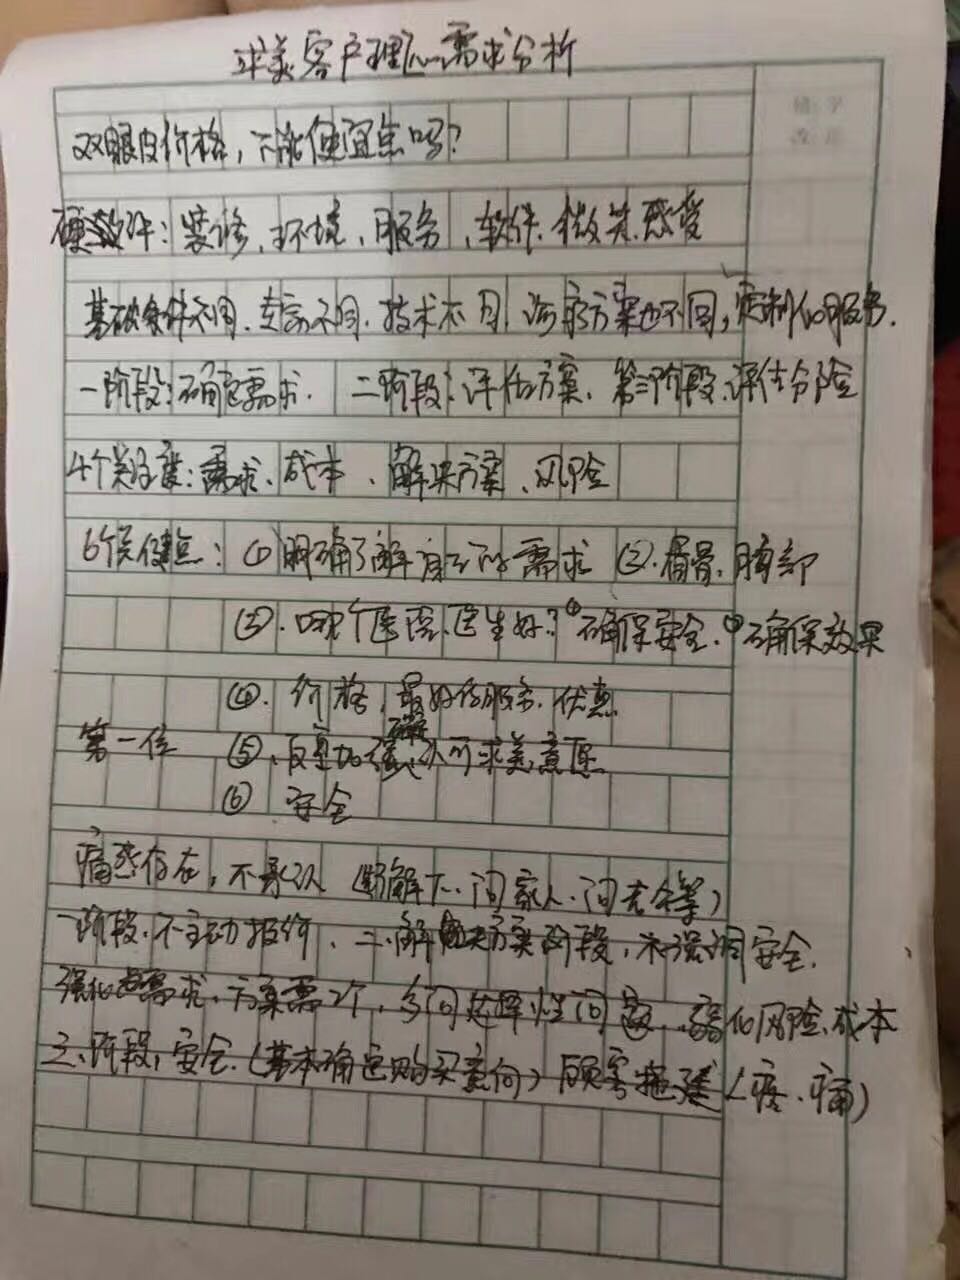 求美客户理心需求分析
双眼皮价格,不能便宜点吗?
硬软件:装修、环境、服务、软件、微笑、感受
基础条件不同、专家不同、技术不同、治疗方案也不同,定制化服务.
一阶段:确定需求. 二阶段:评估方案. 第三阶段.评估分险
4个关注度:需求、成本、解决方案、风险
6个关键点:① 明确了解自己的需求 ②.眉骨、脑部
③.哪个医院、医生好?①确保安全.②确保效果
④.价格,最好的服务.优惠
第一位 ⑤、反复加强 确认可求美意愿
⑥ 安全
痛点存在,不承认(了解下、问家人、问老公等)
一阶段.不主动报价、二.解决方案阶段,不强调安全.
强化需求.方案需2个,多问选择性问题,弱化风险、成本
三.阶段,安全.(基本确定购买意向)顾客拖延(疼、痛)